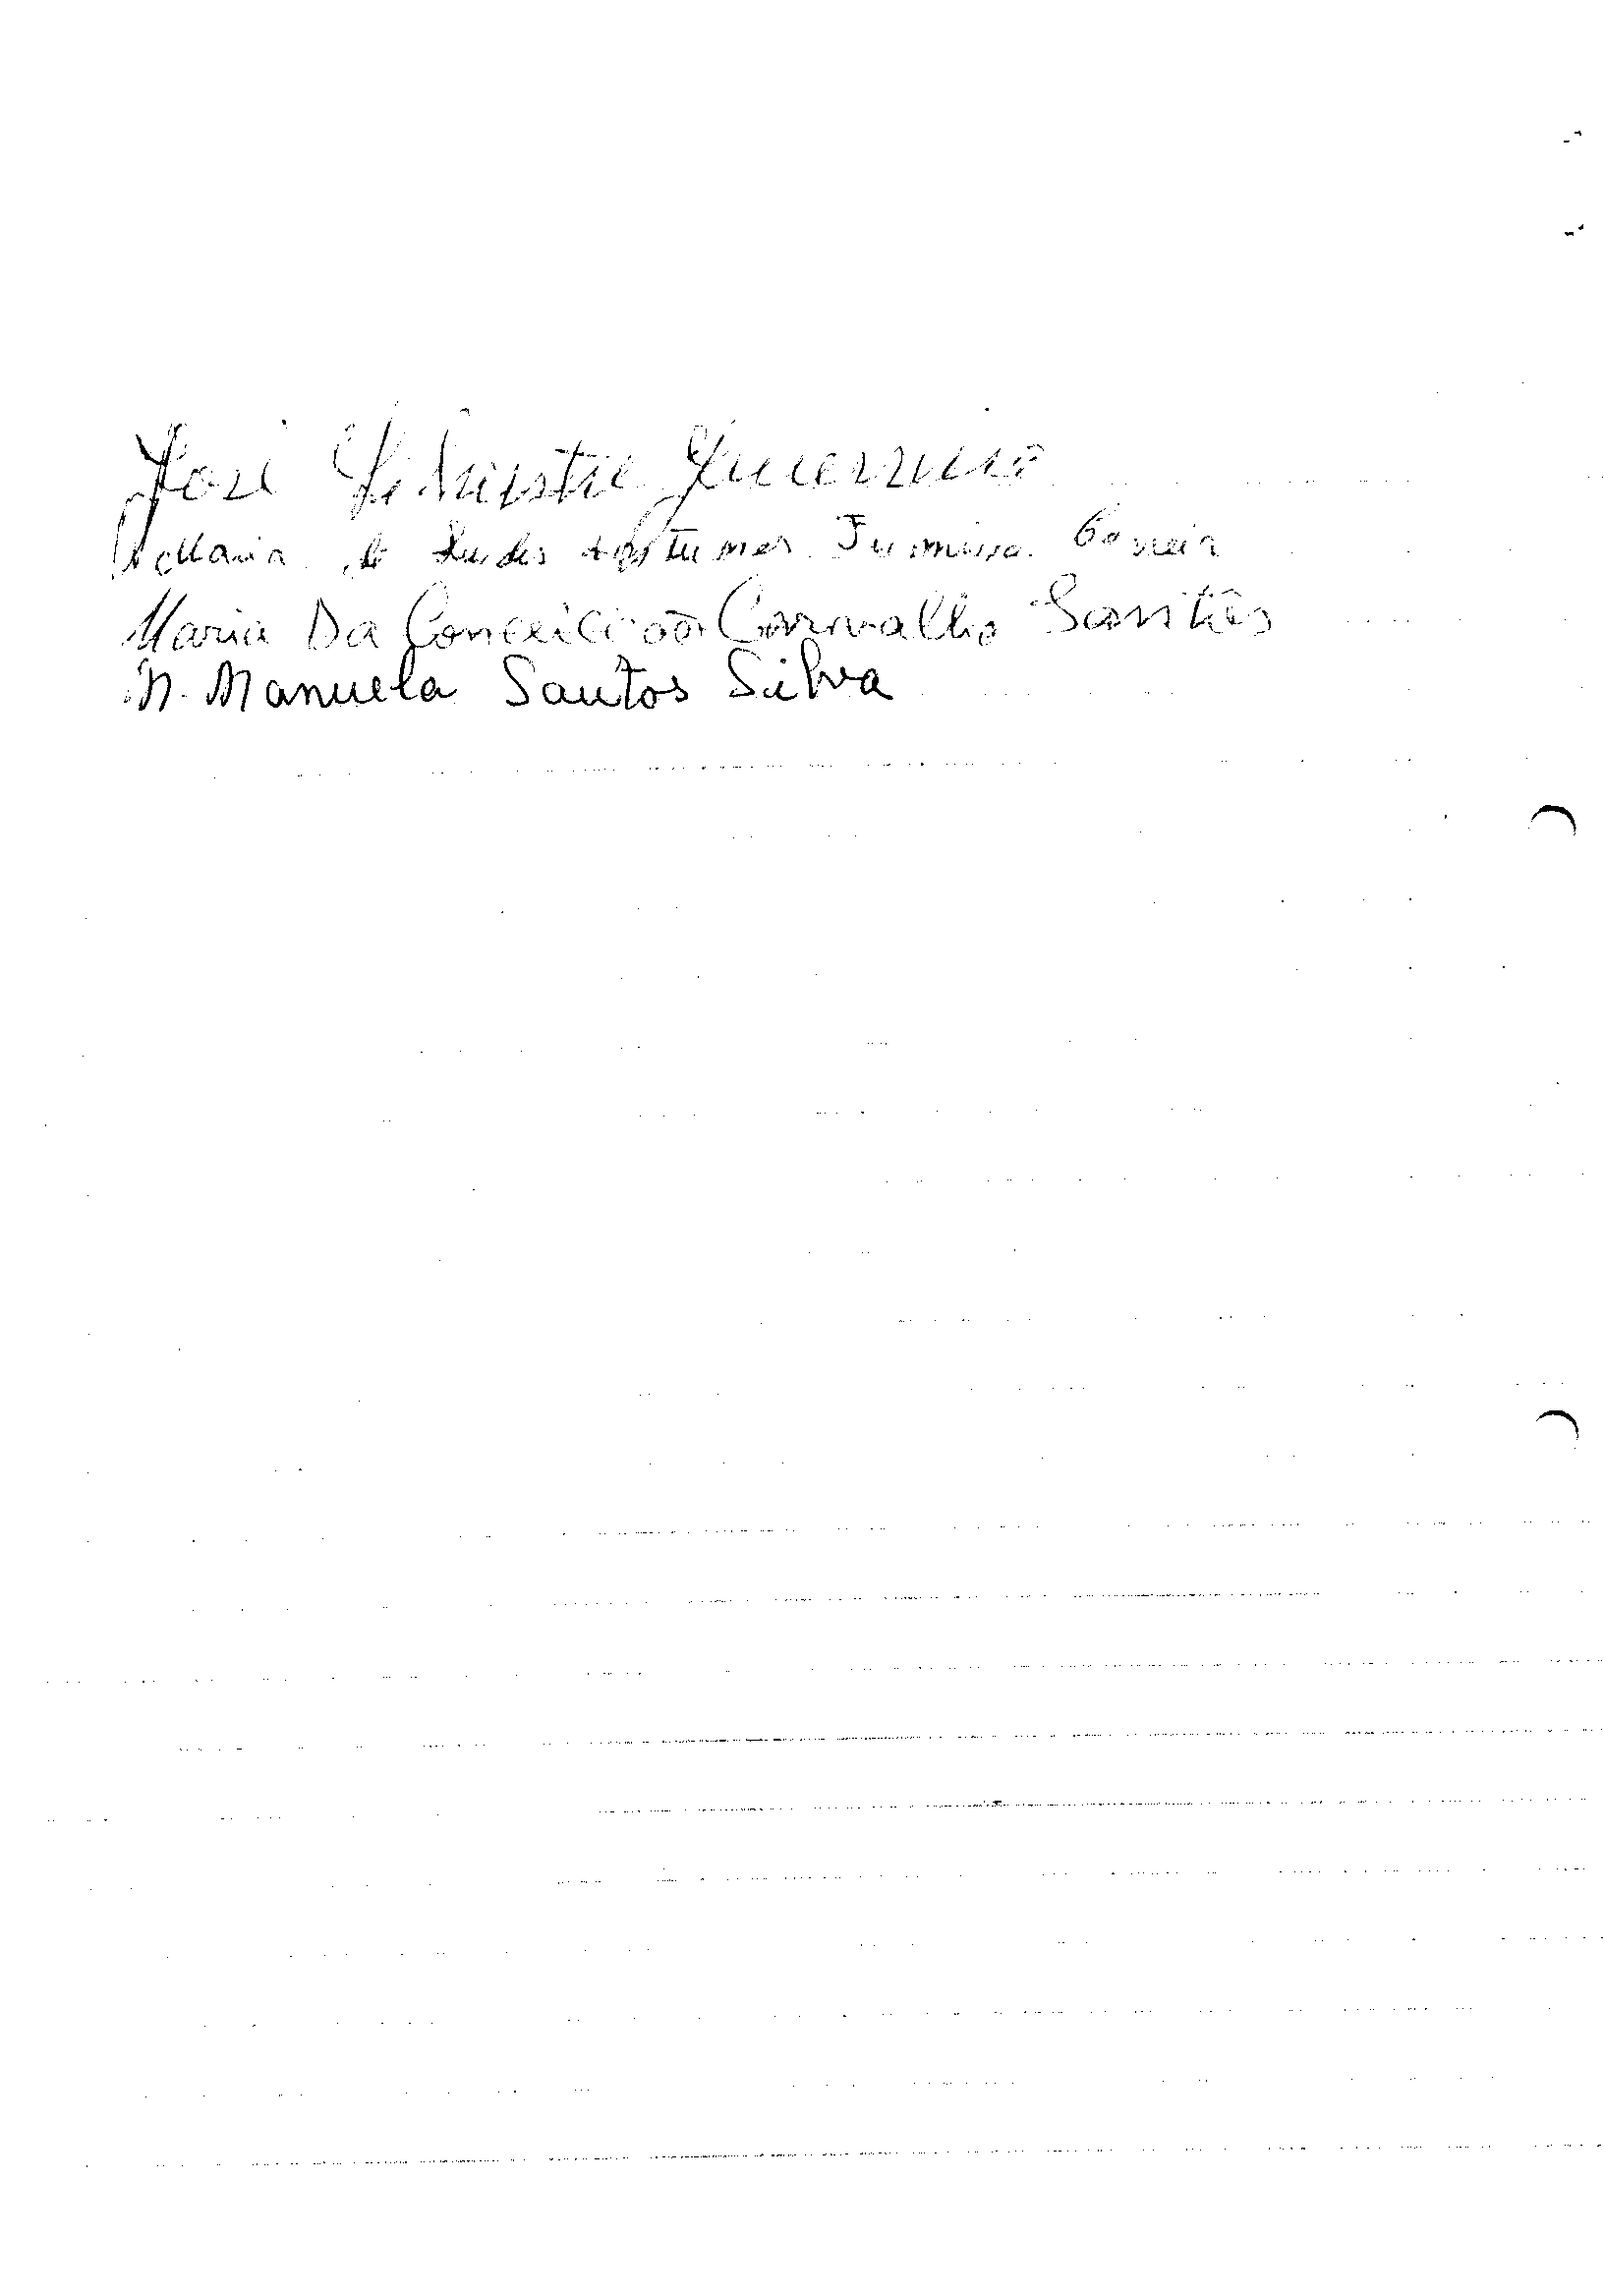 José Silvestre Guerreiro
Maria de Lurdes Correia
Maria Da Conceicão Carvalho Santos
M. Manuela Santos Silva